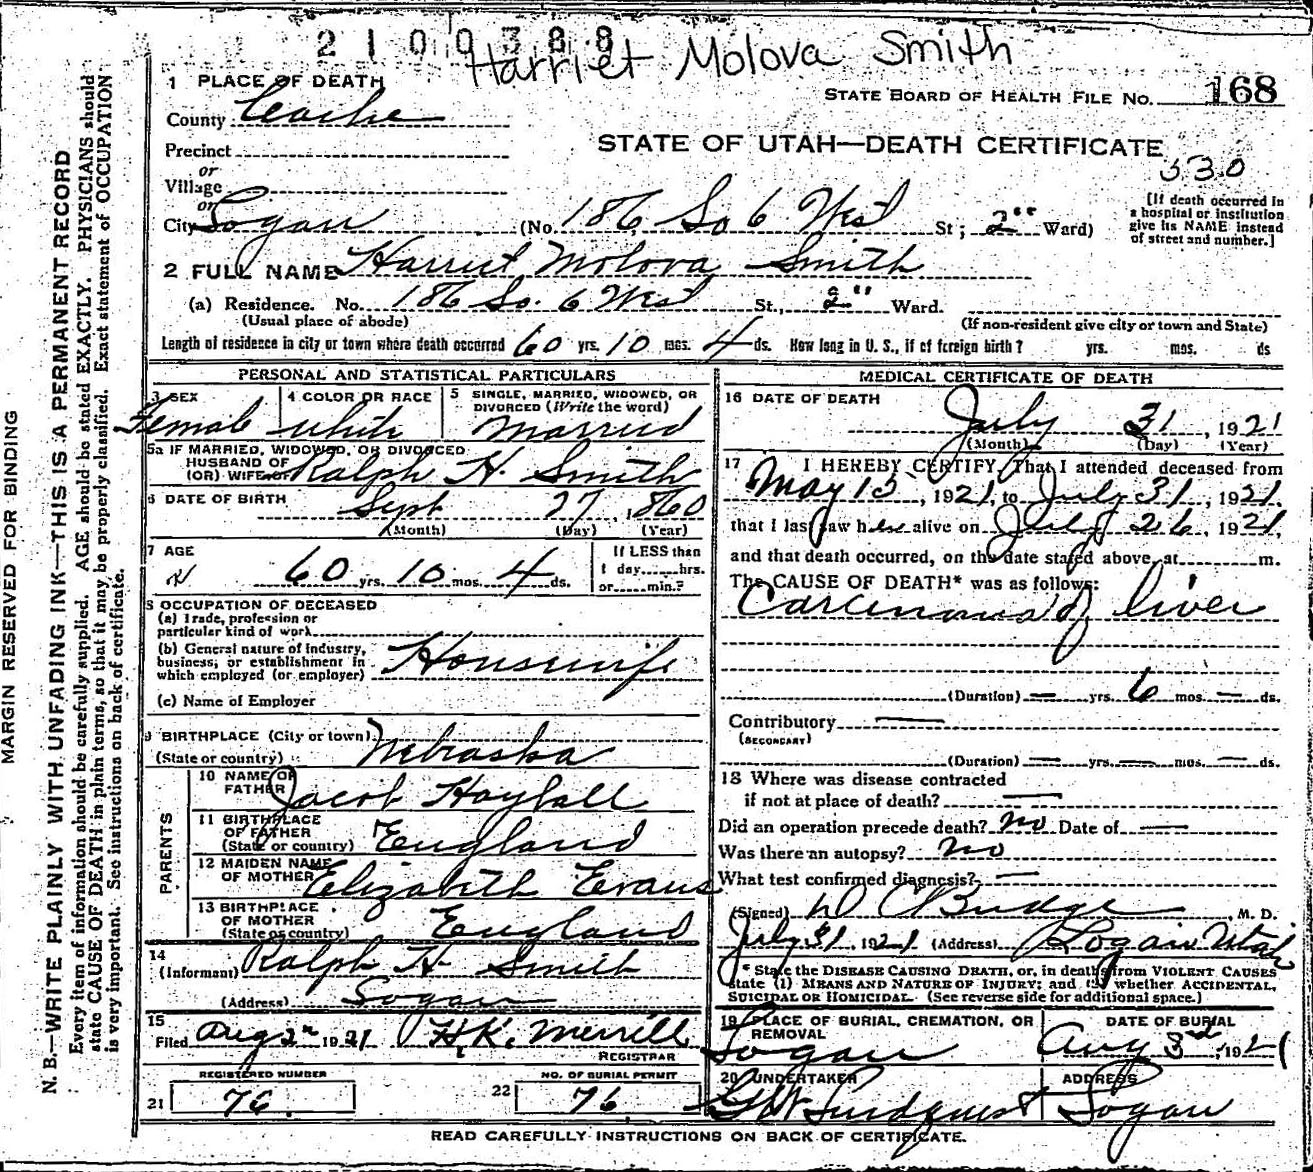 2100388
Harriet Molova Smith
1 PLACE OF DEATH
STATE BOARD OF HEALTH FILE No. 168
County Cache
STATE OF UTAH—DEATH CERTIFICATE
530
Precinct
or
Village
or
City Logan (No. 186 So 6 West St; 2" Ward)
[If death occurred in
a hospital or institution
give its NAME instead
of street and number.]
2 FULL NAME Harriet Molova Smith
(a) Residence. No. 186 So. 6 West St., 2" Ward.
(Usual place of abode) (If non-resident give city or town and State)
Length of residence in city or town where death occurred 60 yrs. 10 mos. 4 ds. How long in U. S., if of foreign birth? yrs. mos. ds
PERSONAL AND STATISTICAL PARTICULARS
3 SEX Female
4 COLOR OR RACE White
5 SINGLE, MARRIED, WIDOWED, OR
DIVORCED (Write the word)
Married
5a IF MARRIED, WIDOWED, OR DIVORCED
HUSBAND OF
(OR) WIFE OF Ralph H. Smith
6 DATE OF BIRTH Sept 27, 1860
(Month) (Day) (Year)
7 AGE
60 yrs. 10 mos. 4 ds.
If LESS than
1 day......hrs.
or......min.?
8 OCCUPATION OF DECEASED
(a) Trade, profession or
particular kind of work
(b) General nature of industry,
business, or establishment in
which employed (or employer) Housewife
(c) Name of Employer
9 BIRTHPLACE (City or town)
(State or country) Nebraska
PARENTS
10 NAME OF
FATHER Jacob Hayball
11 BIRTHPLACE
OF FATHER
(State or country) England
12 MAIDEN NAME
OF MOTHER Elizabeth Evans
13 BIRTHPLACE
OF MOTHER
(State or country) England
14
(Informant) Ralph H Smith
(Address) Logan
15
Filed Aug 2" 1921 H.K. Merrill
REGISTRAR
REGISTERED NUMBER
21 76
NO. OF BURIAL PERMIT
22 76
MEDICAL CERTIFICATE OF DEATH
16 DATE OF DEATH
July 31, 1921
(Month) (Day) (Year)
17 I HEREBY CERTIFY, That I attended deceased from
May 15, 1921, to July 31, 1921.
that I last saw her alive on July 26, 1921,
and that death occurred, on the date stated above, at m.
The CAUSE OF DEATH* was as follows:
Carcinoma of liver
(Duration) — yrs. 6 mos. — ds.
Contributory —
(SECONDARY)
(Duration) — yrs. — mos. — ds.
18 Where was disease contracted
if not at place of death? —
Did an operation precede death? no Date of —
Was there an autopsy? no
What test confirmed diagnosis? —
(Signed) D C Budge, M. D.
July 31, 1921 (Address) Logan Utah
* State the DISEASE CAUSING DEATH, or, in deaths from VIOLENT CAUSES
state (1) MEANS AND NATURE OF INJURY; and (2) whether ACCIDENTAL,
SUICIDAL OR HOMICIDAL. (See reverse side for additional space.)
19 PLACE OF BURIAL, CREMATION, OR
REMOVAL
Logan
DATE OF BURIAL
Aug 3rd, 1921
20 UNDERTAKER
G W Lindquist
ADDRESS
Logan
READ CAREFULLY INSTRUCTIONS ON BACK OF CERTIFICATE.
MARGIN RESERVED FOR BINDING
N. B.—WRITE PLAINLY WITH UNFADING INK—THIS IS A PERMANENT RECORD
Every item of information should be carefully supplied. AGE should be stated EXACTLY. PHYSICIANS should
state CAUSE OF DEATH in plain terms, so that it may be properly classified. Exact statement of OCCUPATION
is very important. See instructions on back of certificate.